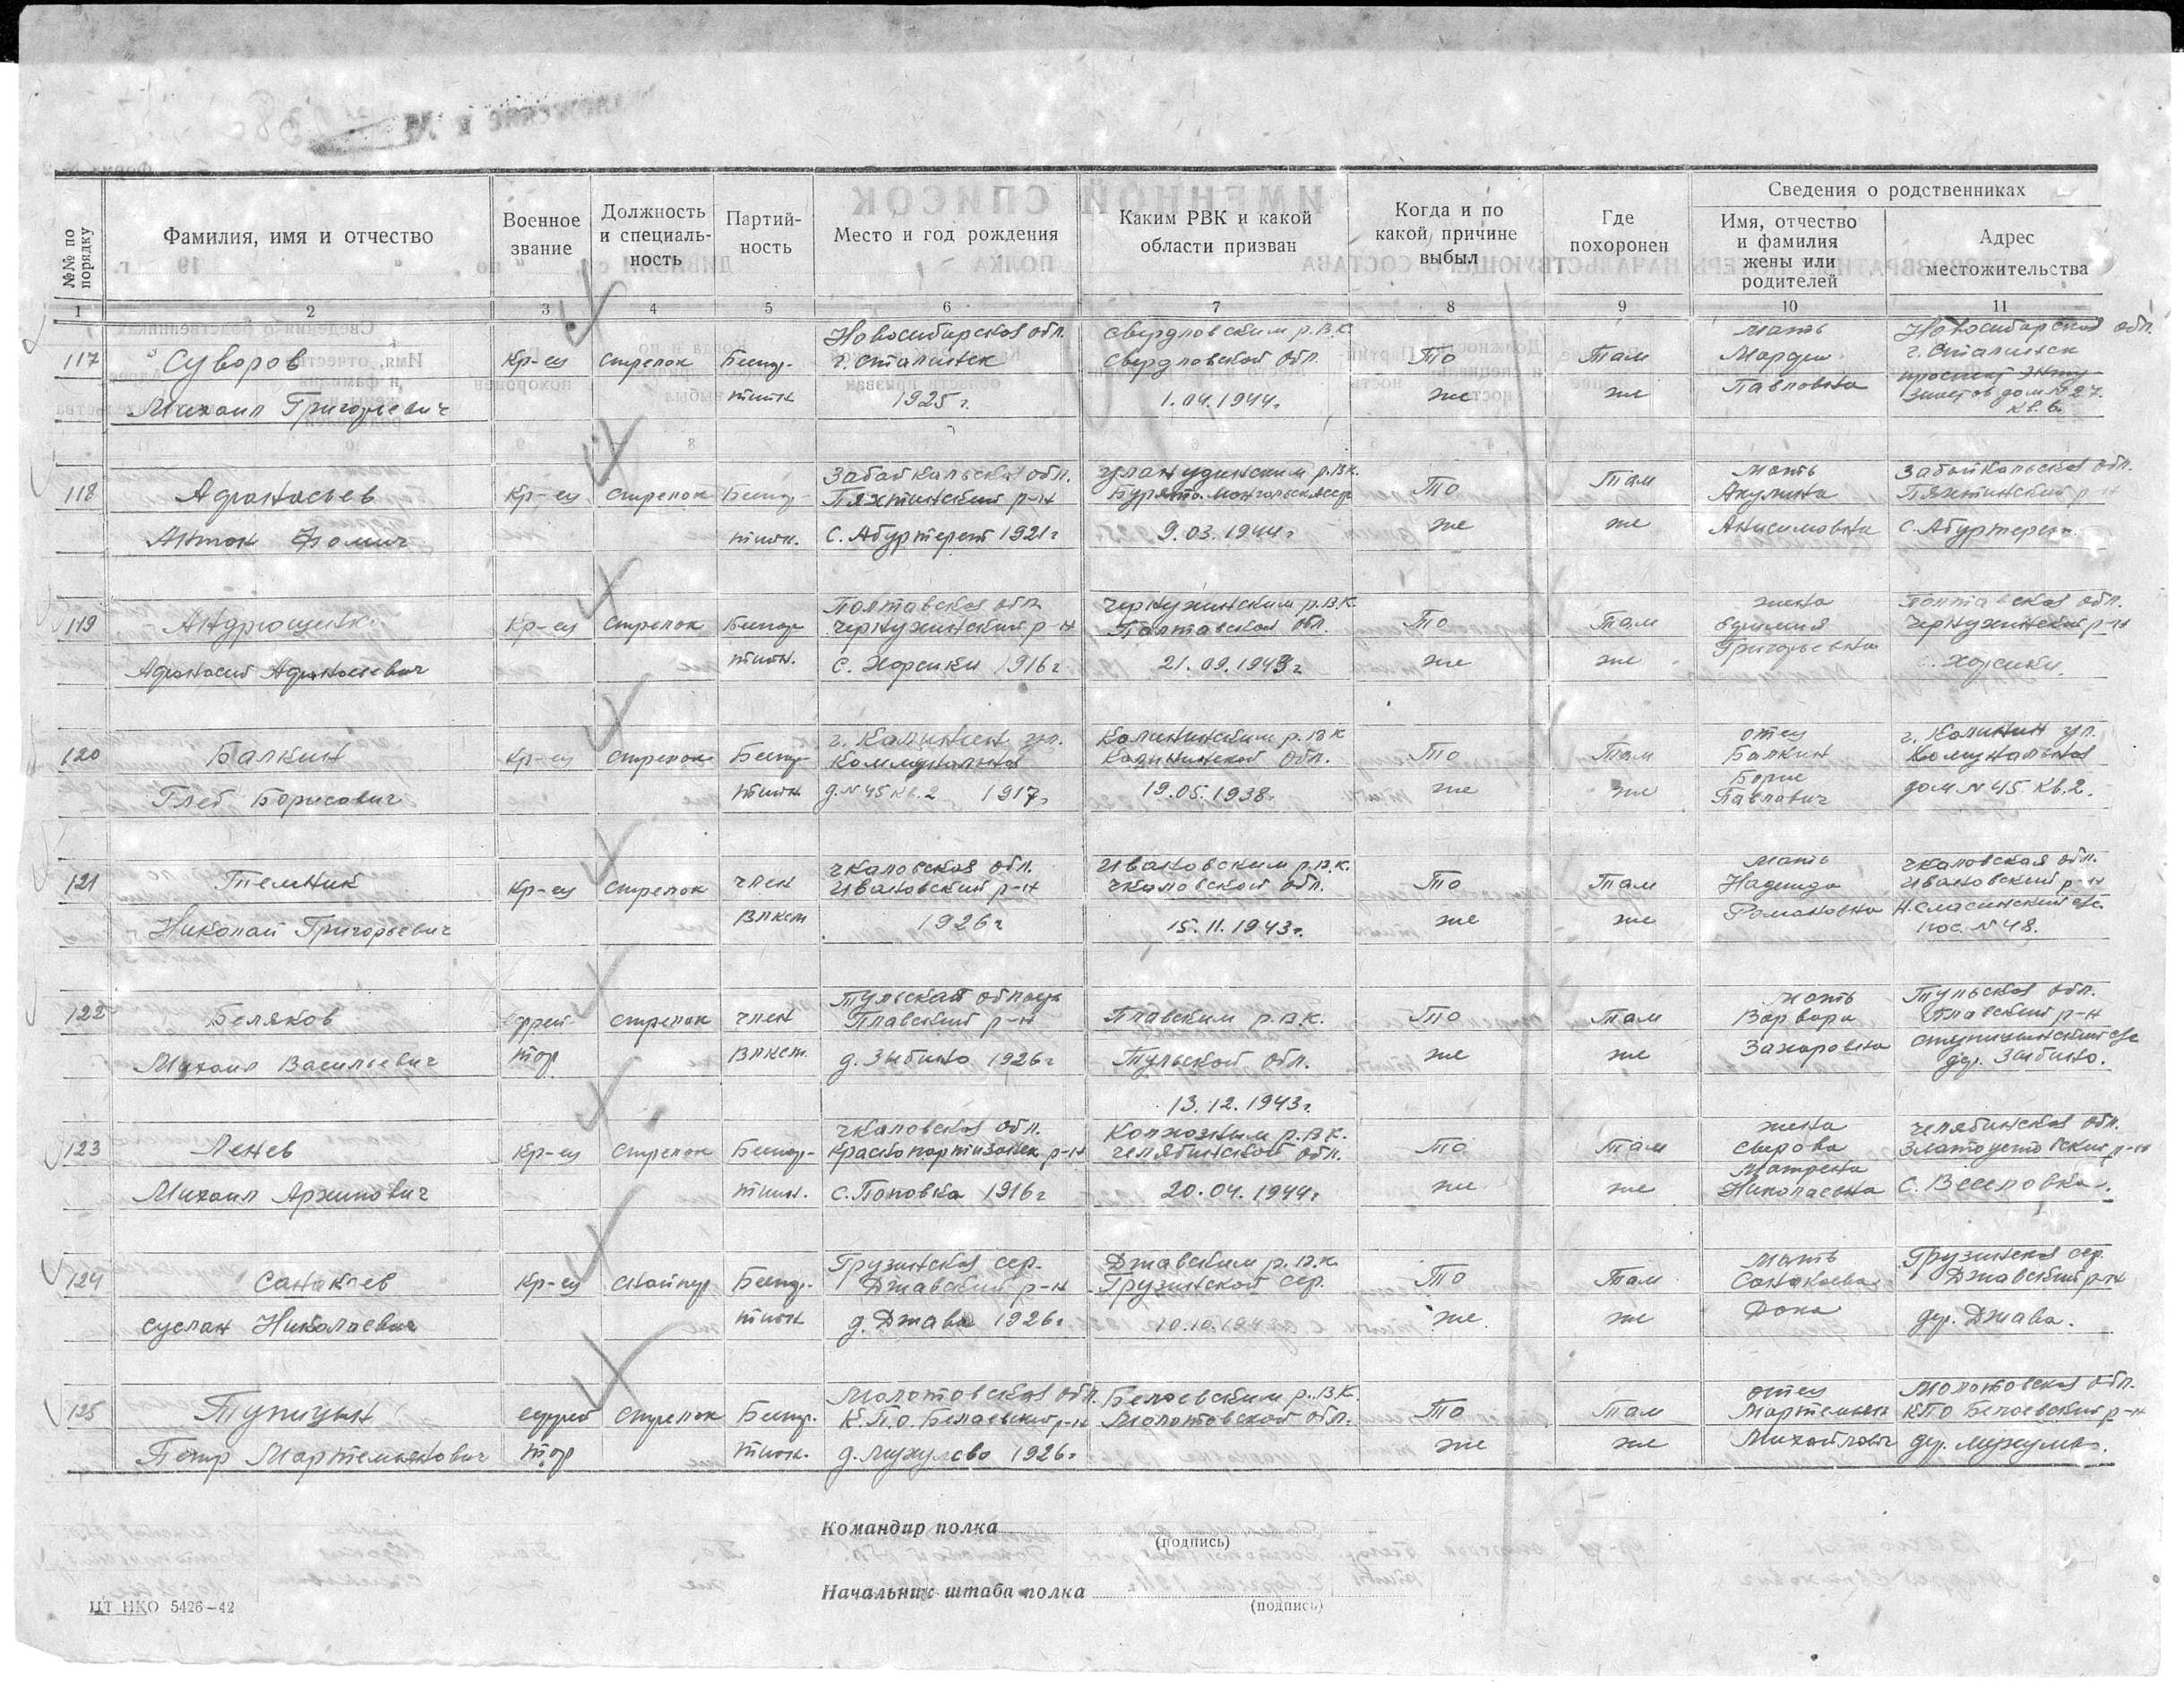 №№ по порядку
Фамилия, имя и отчество
Военное звание
Должность и специаль-ность
Партий-ность
Место и год рождения
Каким РВК и какой области призван
Когда и по какой причине выбыл
Где похоронен
Сведения о родственниках
Имя, отчество и фамилия жены или родителей
Адрес местожительства
1 2 3 4 5 6 7 8 9 10 11
Новосибирская обл. Свердловским р.в.к. мать Новосибирская обл.
117 Суворов Кр-ец Стрелок Беспар- г. Сталинск Свердловской обл. То Там Марфа г. Сталинск
Михаил Григорьевич тийн 1925 г. 1.04.1944г. же же Павловна проспект Энту-
зиастов дом № 27.
кв. 6.
Забайкальская обл. Улан удинским р.в.к. мать Забайкальская обл.
118 Афанасьев Кр-ец Стрелок Беспар- р-н То Там Акулина р-н
Антон Фомич тийн. С. 1921г 9.03.1944г же же Анисимовна С.
Полтавская обл. Чернухинским р.в.к. жена Полтавская обл.
119 Андрющенко Кр-ец Стрелок Беспар- Чернухинский р-н Полтавской обл. То Там Чернухинский р-н
Афанасий Афанасьевич тийн. с. Харсики 1916г. 21.09.1943г же же Григорьевна с. Харсики.
г. Калинин ул. Калининским р.в.к отец г. Калинин ул.
120 Балкин Кр-ец Стрелок Беспар- Коммунальная Калининской обл. То Там Балкин Комунальная
Глеб Борисович тийн д. № 45 кв. 2 1917г. 19.05.1938г. же же Борис дом № 45 кв. 2.
Павлович
Чкаловская обл. Ивановским р.в.к. мать Чкаловская обл.
121 Темник Кр-ец Стрелок член Ивановский р-н Чкаловской обл. То Там Надежда Ивановский р-н
Николай Григорьевич Влксм 1926г 15.11.1943г. же же Романовна
пос. № 48.
Тульская мать Тульская обл.
122 Беляков ефрей- Стрелок член Плавский р-н Плавским р.в.к. То Там Варвара Плавский р-н
Михаил Васильевич тор Влксм. д. Зыбино 1926г Тульской обл. же же Захаровна
дер. Зыбино.
13.12.1943г.
Чкаловская обл. Колхозным р.в.к. жена Челябинская обл.
123 Ленев Кр-ец Стрелок Беспар- Краснопартизанск. р-н Челябинской обл. То Там Сырова Златоустовский р-н
Михаил Архипович тийн. с. Поповка 1916г 20.04.1944г же же Матрена С. Веселовка.
Николаевна
Грузинская сср. Джавским р.в.к. мать Грузинская сср.
124 Санакоев Кр-ец снайпер Беспар- Джавский р-н Грузинской сср. То Там Санакоева Джавский р-н
Суслан Николаевич тийн д. Джава 1926г 10.10.1943г же же дер. Джава.
Молотовская обл. Белоевским р.в.к. отец Молотовская обл.
125 Тупицын ефрей Стрелок Беспар. К.П.О. Белаевский р-н Молотовской обл. То Там Мартемьян КПО Белоевский р-н
Петр Мартемьянович тор тийн. 1926г. же же Михайлович дер.
Командир полка
(подпись)
Начальник штаба полка
(подпись)
ЦТ НКО 5426—42